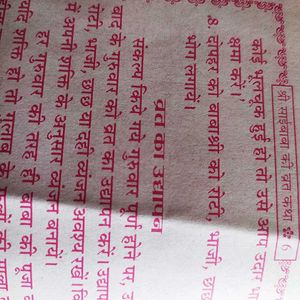 श्री साईबाबा की व्रत कथा ❃ 6
कोई भूलचूक हुई हो तो उसे आप उदार भा
क्षमा करें।
8. दुपहर को बाबाश्री को रोटी, भाजी, छाछ
भोग लगायें।
व्रत की उद्यापन
संकल्प किये गये गुरुवार पूर्ण होने पर, उ
बाद के गुरुवार को व्रत का उद्यापन करें। उद्यापन
रोटी, भाजी, छाछ या दही व्यंजन अवश्य रखें।
में अपनी शक्ति के अनुसार व्यंजन बनायें।
हर गुरुवार की तरह ही बाबा की पूजा
यदि शक्ति हो तो गुलाब के